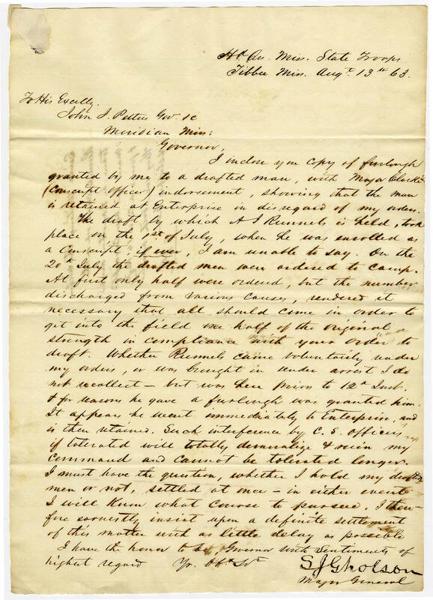 Hd Qrs. Miss. State Troops
Tibbee Miss. Augt 13th 63.
To His Excelly.
John J. Pettus Gov. &c
Meridian Miss:
Governor;
I inclose you Copy of furlough
granted by me to a drafted man, with Major Clark's
(Conscript officer) indorsement, showing that the man
is retained at Enterprise in disregard of my orders.
The draft by which A J Runnels is held, took
place on the 1st of July, when he was enrolled as
a Conscript, if ever, I am unable to say. On the
20th July the drafted men were ordered to Camp.
At first only half were ordered, but the number
discharged from various causes, rendered it
necessary that all should come in order to
get into the field one half of the original
strength in compliance with your order to
draft. Whether Runnels came voluntarily under
my orders, or was brought in under arrest I do
not recollect – but was here prior to 12th Inst.
& for reasons he gave a furlough was granted him.
It appears he went immediately to Enterprise, and
is then retained. Such interference by C. S. officers,
if tolerated will totally demoralize & ruin my
command and cannot be tolerated longer.
I must have the question, whether I hold my drafted
men or not, settled at once – in either event
I will know what course to pursue, I there-
fore earnestly insist upon a definite settlement
of this matter with as little delay as possible
I have the honor to be, Governor with sentiments of
highest regard Yr. Obt. Svt
S J Gholson
Major General